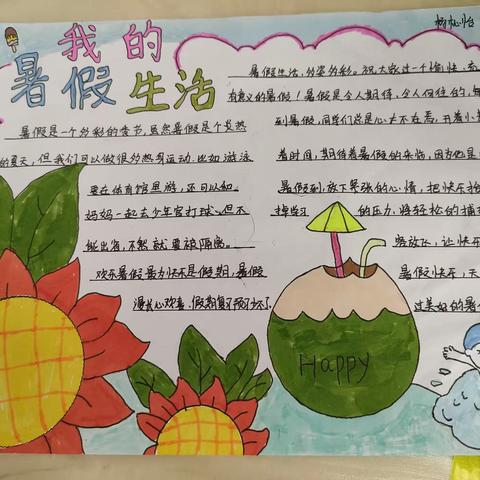 我的
暑假生活
暑假是一个多彩的季节,虽然暑假是个炎热
的夏天,但我们可以做很多热身运动.比如游泳
要在体育馆里游,还可以和
妈妈一起去少年宫打球.但不
能出省,不然就要被隔离。
欢乐暑假最为快乐是假期,暑假
漫长心欢喜、假期复习预习好。
暑假生活,多姿多彩。祝大家过一个愉快、充
有意义的暑假!暑假是令人期待,令人向往的,每
到暑假,同学们总是心大不在焉,开着小
着时间,期待着暑假的来临,因为他是
暑假到,放下紧张的心情,把快乐拾
掉学习的压力,将轻松的捕
容放飞,让快乐
暑假快乐,天
过美好的暑
Happy